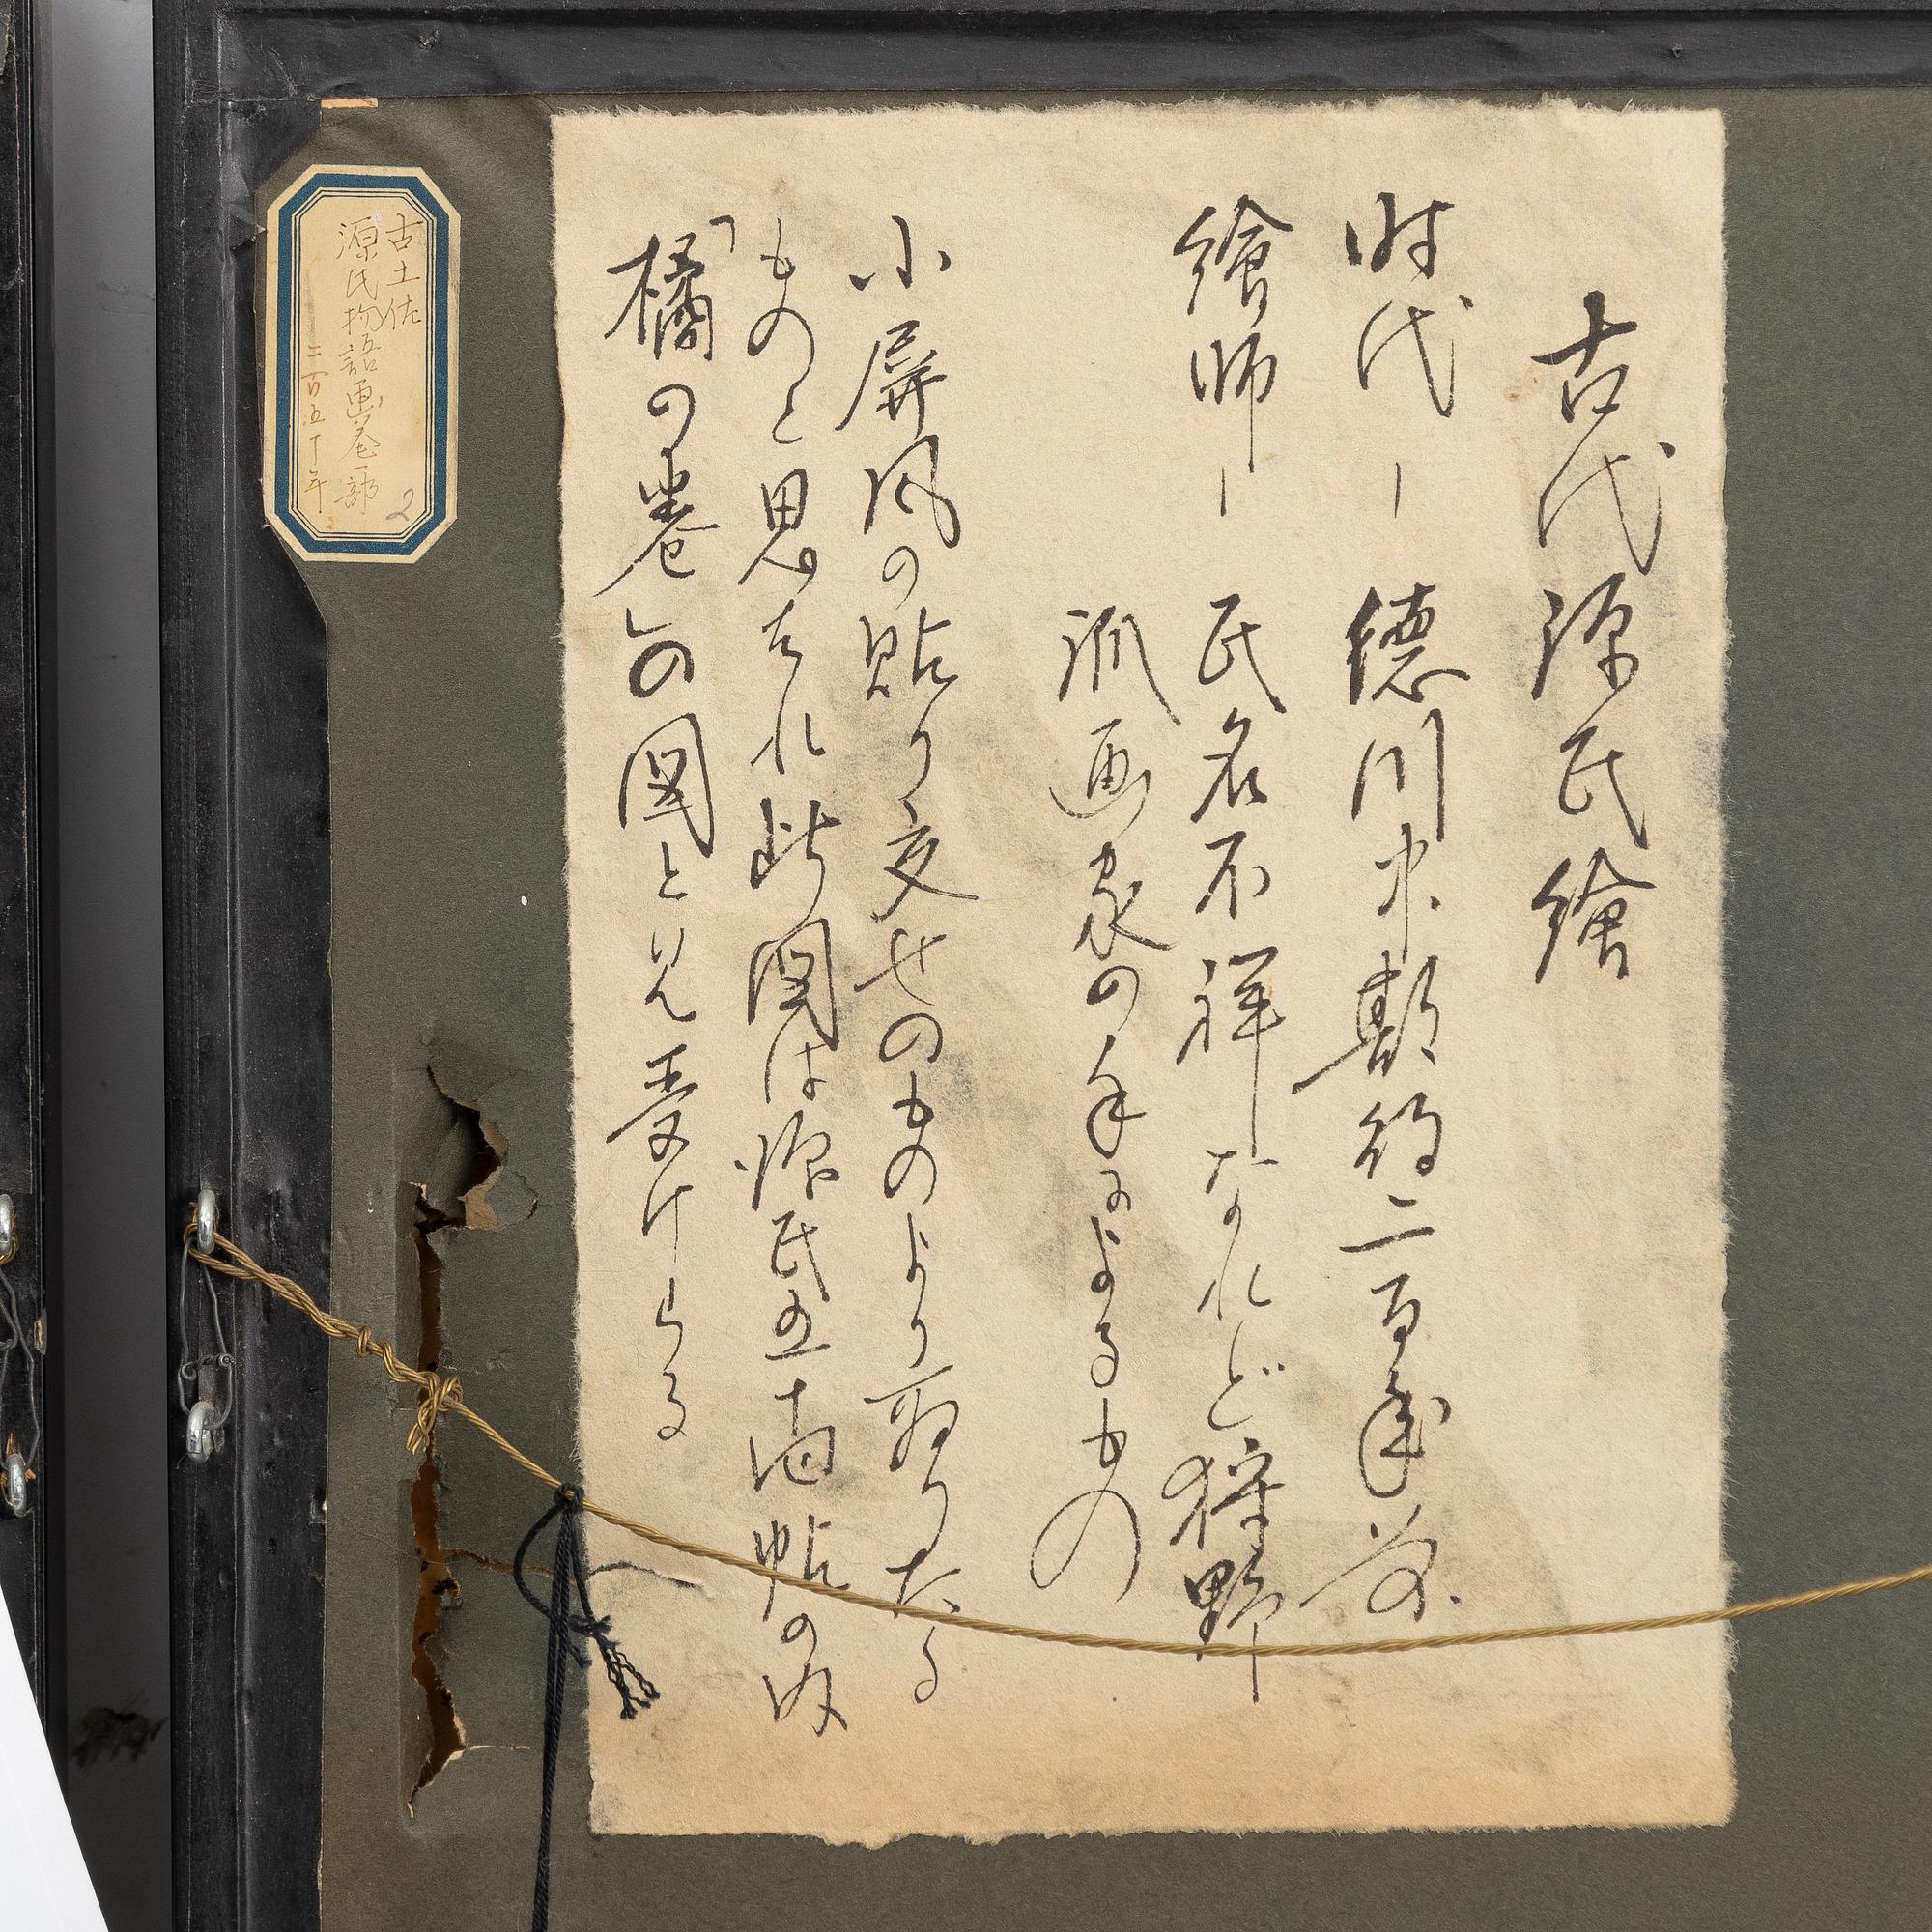 古代源氏繪
時代ー德川中期約二百年前
繪師ー氏名不祥なれど狩野
派画家の手によるもの
小屏風の貼り交せのものより取りたる
ものと思はれ此図は源氏五十四帖の内
「橘の巻」の図と見受けらる
古土佐
源氏物語画巻一部
二百五十年
2